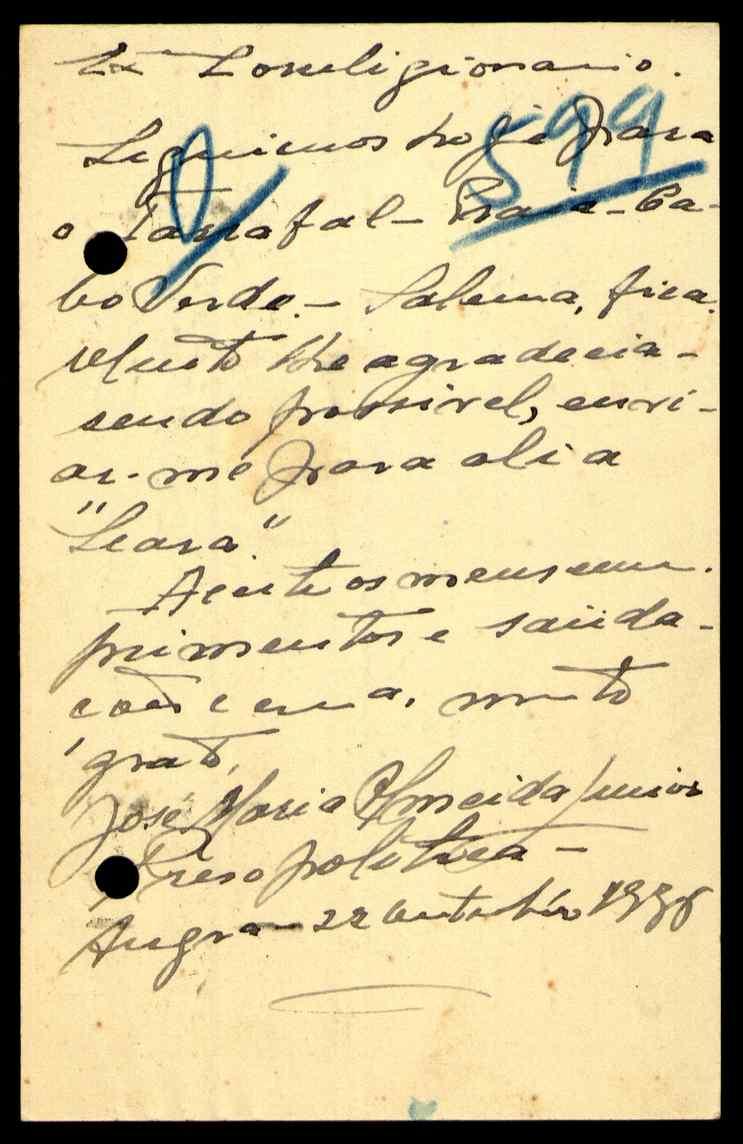 Exº Correligionario.
599
Seguimos hoje para
o Tarrafal - Praia - Ca-
bo Verde. - Salema, fica.
Muito lhe agradecia -
sendo possivel, envi-
ar-me para ali a
"Seara"
Aceite os meus cum-
primentos e saüda-
cões e cr a, muito
grato,
José Maria Almeida Junior
Preso politico -
Angra - 22 Outubro 1936